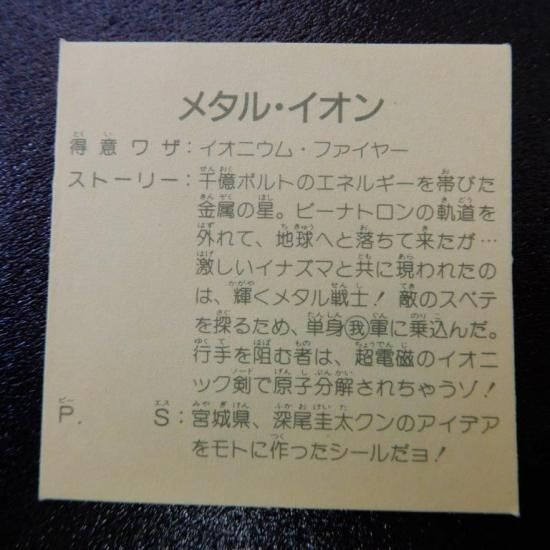 メタル・イオン
得意ワザ:イオニウム・ファイヤー
ストーリー:千億ボルトのエネルギーを帯びた
金属の星。ビーナトロンの軌道を
外れて、地球へと落ちて来たが…
激しいイナズマと共に現われたの
は、輝くメタル戦士!敵のスベテ
を探るため、単身我軍に乗込んだ。
行手を阻む者は、超電磁のイオニ
ック剣で原子分解されちゃうゾ!
P.S:宮城県、深尾圭太クンのアイデア
をモトに作ったシールだヨ!